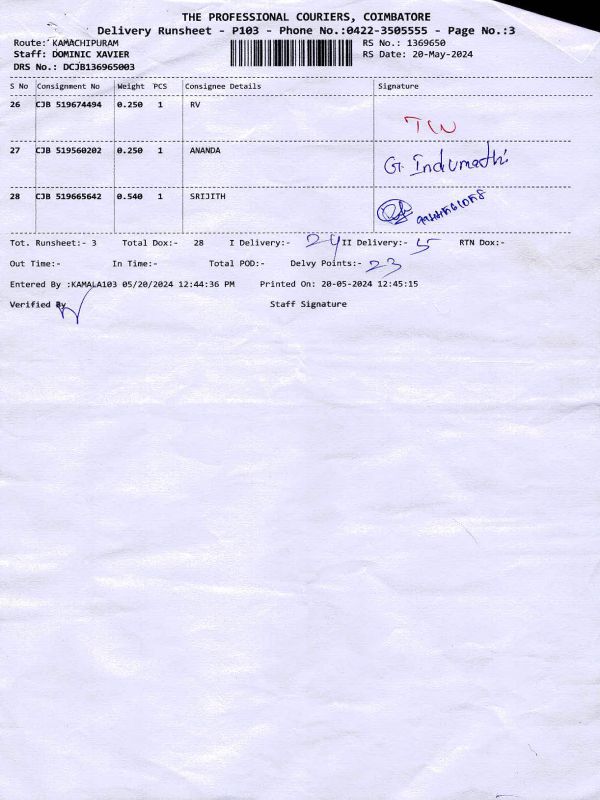 THE PROFESSIONAL COURIERS, COIMBATORE
Delivery Runsheet - P103 - Phone No.:0422-3505555 - Page No.:3
Route: KAMACHIPURAM RS No.: 1369650
Staff: DOMINIC XAVIER RS Date: 20-May-2024
DRS No.: DCJB136965003
S No Consignment No Weight PCS Consignee Details Signature
26 CJB 519674494 0.250 1 RV
27 CJB 519560202 0.250 1 ANANDA G. Indumathi
28 CJB 519665642 0.540 1 SRIJITH
Tot. Runsheet:- 3 Total Dox:- 28 I Delivery:- 24 II Delivery:- 5 RTN Dox:-
Out Time:- In Time:- Total POD:- Delvy Points:- 23
Entered By :KAMALA103 05/20/2024 12:44:36 PM Printed On: 20-05-2024 12:45:15
Verified By Staff Signature